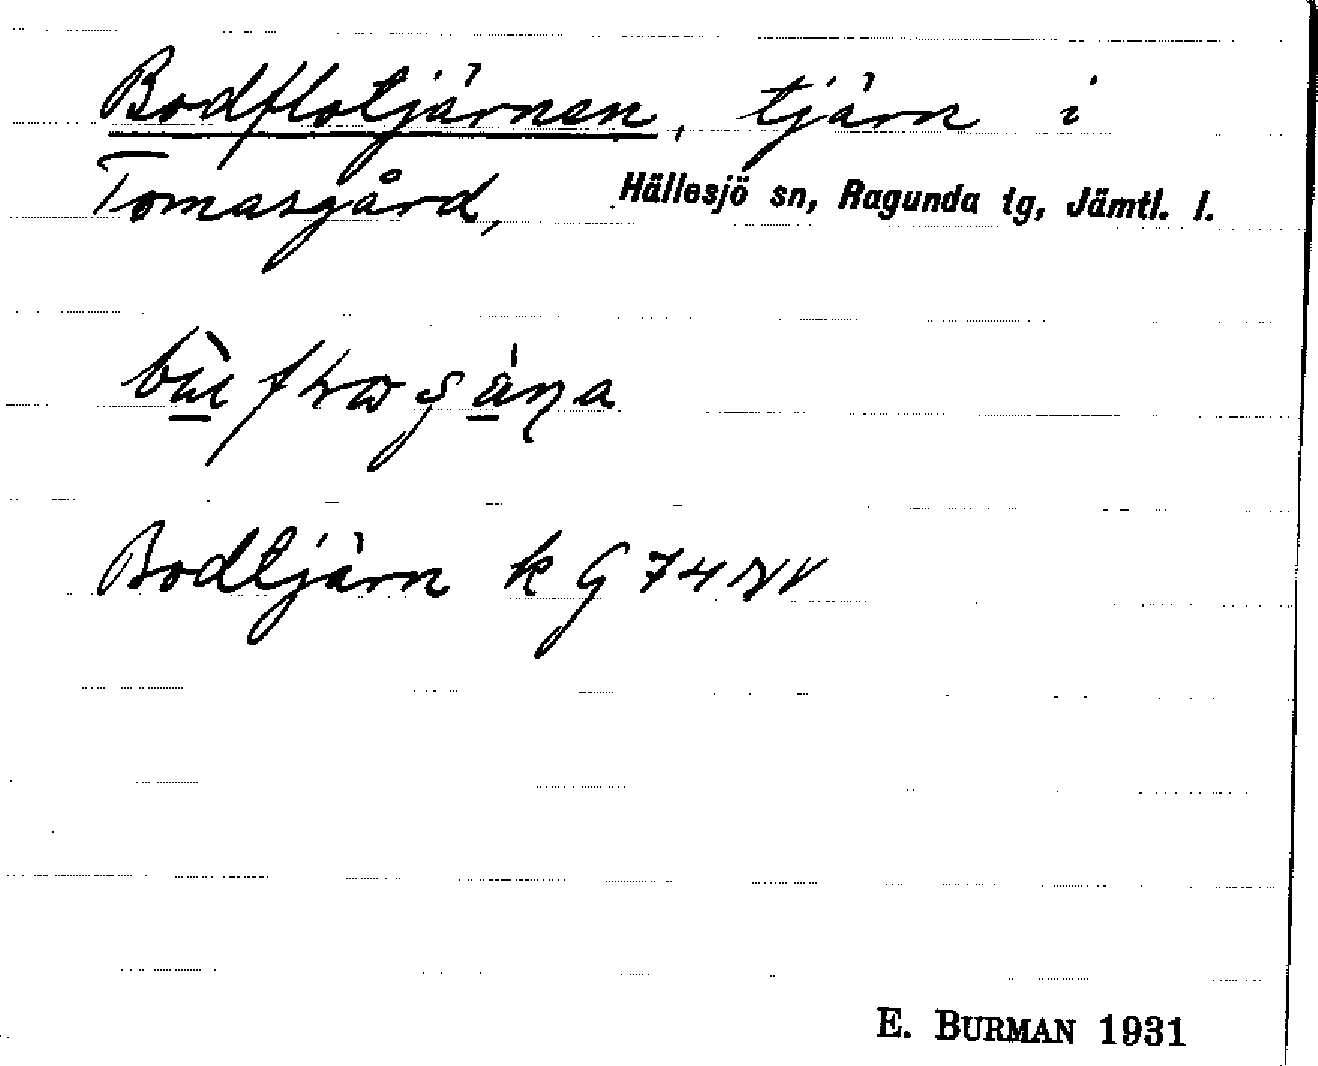 Bodflotjärnen, tjärn i
Tomasgård, Hällesjö sn, Ragunda tg, Jämtl. l.
Bodtjärn k G 74 NV
E. BURMAN 1931